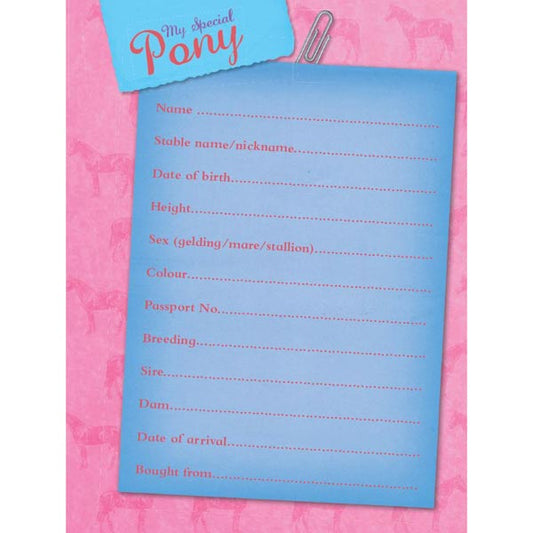 My Special
Pony
Name ..........................................................
Stable name/nickname..................................
Date of birth..................................................
Height............................................................
Sex (gelding/mare/stallion)............................
Colour............................................................
Passport No....................................................
Breeding.........................................................
Sire.................................................................
Dam...............................................................
Date of arrival...............................................
Bought from..................................................